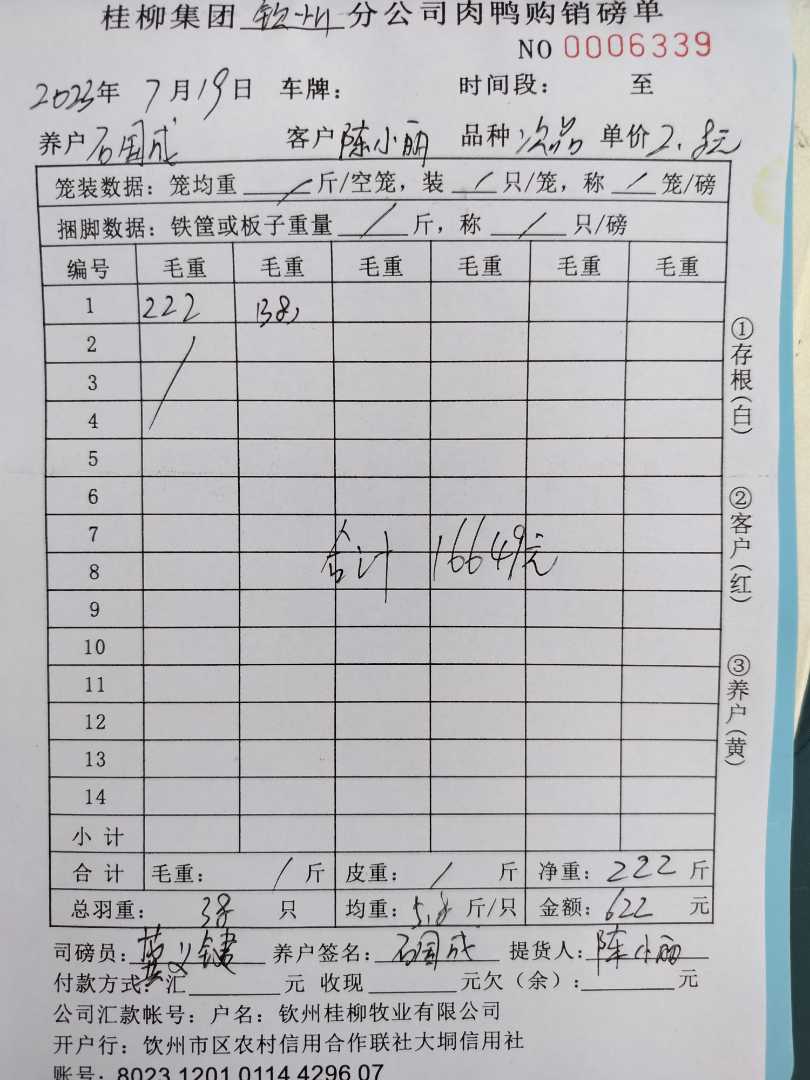 桂柳集团 钦州 分公司肉鸭购销磅单
NO 0006339
2023年 7月19日 车牌： 时间段： 至
养户 石国成 客户 陈小丽 品种 次品 单价 2.8元
笼装数据：笼均重 / 斤/空笼，装 / 只/笼，称 / 笼/磅
捆脚数据：铁筐或板子重量 / 斤，称 / 只/磅
编号 毛重 毛重 毛重 毛重 毛重 毛重
1 222
2
3
4
5
6
7
8
合计 16649元
9
10
11
12
13
14
小 计
合 计 毛重： / 斤 皮重： / 斤 净重：222 斤
总羽重： 38 只 均重：5.8 斤/只 金额：622 元
司磅员： 养户签名：石国成 提货人：陈小丽
付款方式：汇 元 收现 元欠（余）： 元
公司汇款帐号：户名：钦州桂柳牧业有限公司
开户行：钦州市区农村信用合作联社大垌信用社
账号：8023 1201 0114 4296 07
①存根（白）
②客户（红）
③养户（黄）